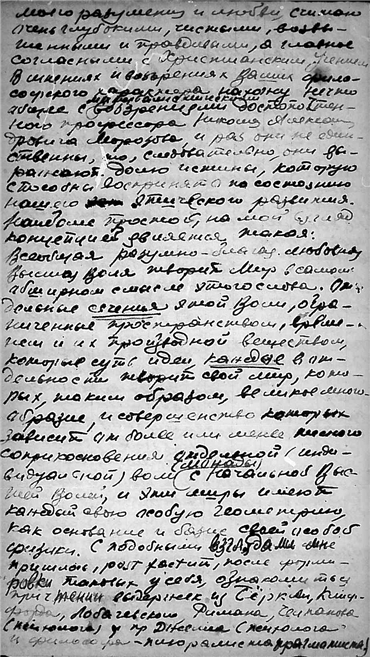 моего разумения и любви, считаю
очень глубокими, чистыми, возвы-
шенными и правдивыми, а главное
согласными с Христианским учением
В мнениях и воззрениях Ваших фило-
софского характера нахожу нечто
общее с воззрениями достопочтен-
ного профессора Николая Алексан-
дровича Морозова и раз они не един-
ственны, то, следовательно, они вы-
ражают долю истины, которую
способны воспринять по состоянию
нашего этического развития.
Наиболее простой, на мой взгляд
концепцией является такая:
Всеобщая разумно-благая любовная
высшая воля творит Мир в самом
обширном смысле этого слова. От-
дельные сечения этой Воли, огра-
ниченные пространством, време-
нем и их производной веществом,
которые суть идеи, каждое в от-
дельности творит свой мир, кото-
рых, таким образом, великое много-
образие, и совершенство которых
зависит от более или менее тесного
соприкосновения отдельной (инди-
видуальной) воли (монады) с начальной Выс-
шей Волей, и эти миры имеют
каждый свою особую геометрию,
как основание и базис своей особой
физики. С подобными взглядами мне
пришлось, после форми-
ровки таковых у себя, ознакомиться
при чтении
Лобачевского Римана, Челпанова
(психолога) и пр Джемса (психолога
и философа-плюралиста прагматиста)